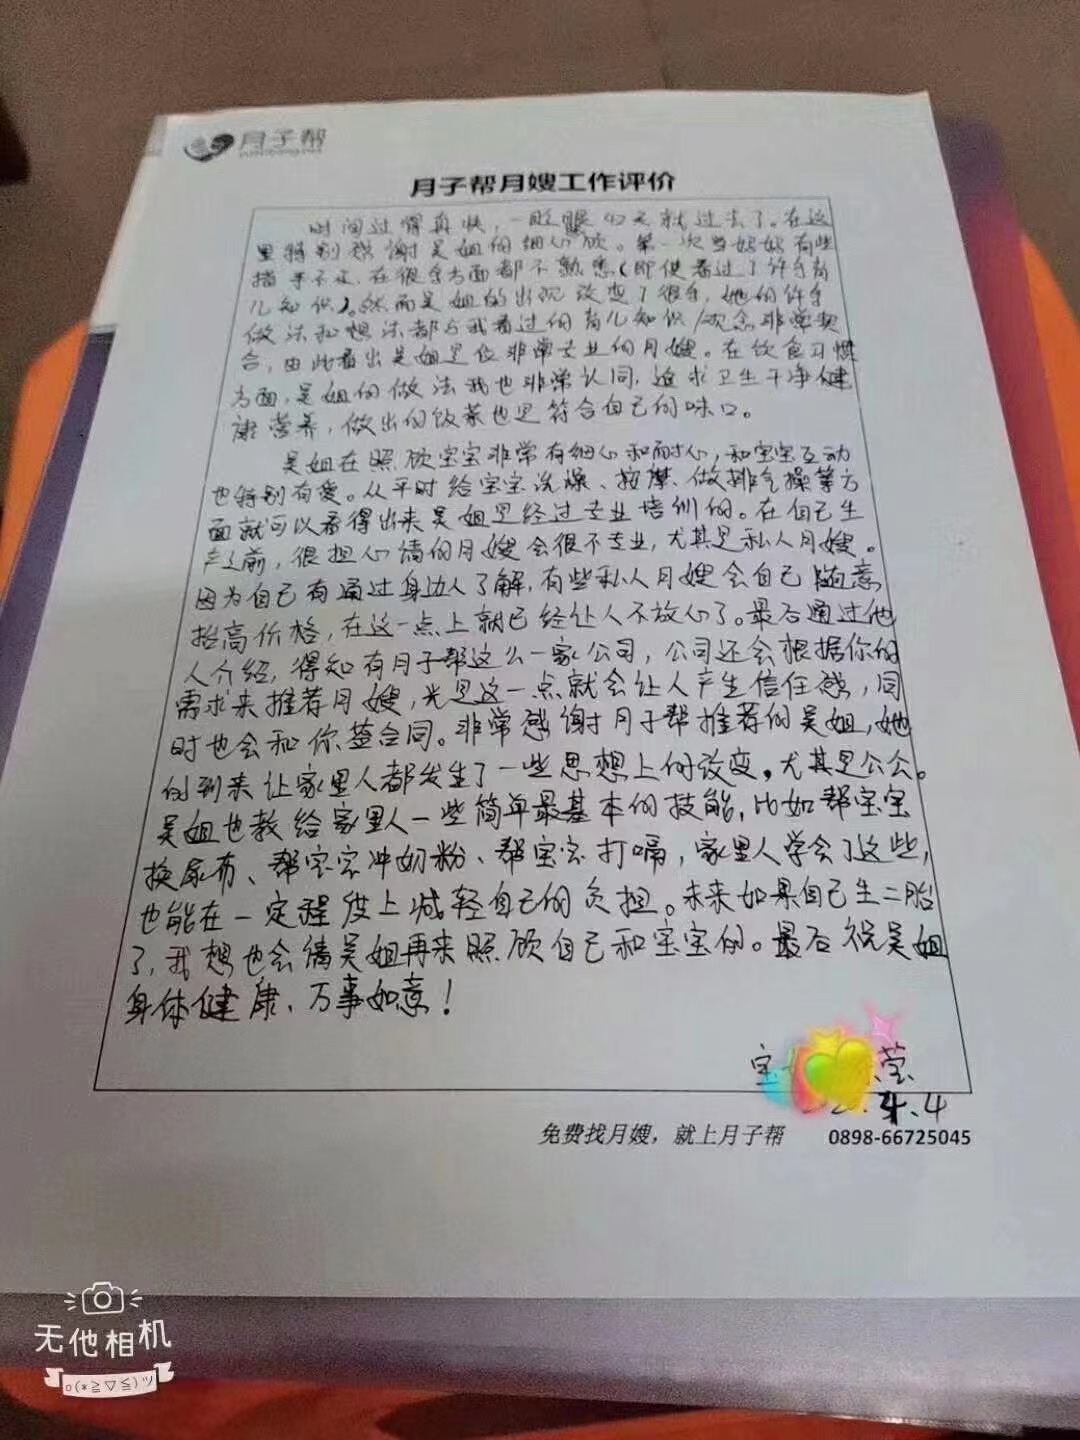 月子帮
yuezibang.net
月子帮月嫂工作评价
时间过得真快，一眨眼42天就过去了。在这
里特别感谢吴姐的细心照顾。第一次当妈妈有些
措手不及，在很多方面都不熟悉（即使看过了许多育
儿知识）。然而吴姐的出现改变了很多，她的许多
做法和想法都与我看过的育儿知识/观念非常契
合，由此看出吴姐是位非常专业的月嫂。在饮食习惯
方面，吴姐的做法我也非常认同，追求卫生干净健
康营养，做出的饭菜也是符合自己的味口。
吴姐在照顾宝宝非常有细心和耐心，和宝宝互动
也特别有爱。从平时给宝宝洗澡、按摩、做排气操等方
面就可以看得出来吴姐是经过专业培训的。在自己生
产之前，很担心请的月嫂会很不专业，尤其是私人月嫂。
因为自己有通过身边人了解，有些私人月嫂会自己随意
抬高价格，在这一点上就已经让人不放心了。最后通过他
人介绍，得知有月子帮这么一家公司，公司还会根据你的
需求来推荐月嫂，光是这一点就会让人产生信任感，同
时也会和你签合同。非常感谢月子帮推荐的吴姐，她
的到来让家里人都发生了一些思想上的改变，尤其是公公。
吴姐也教给家里人一些简单最基本的技能，比如帮宝宝
换尿布、帮宝宝冲奶粉、帮宝宝打嗝，家里人学会了这些，
也能在一定程度上减轻自己的负担。未来如果自己生二胎
了，我想也会请吴姐再来照顾自己和宝宝的。最后祝吴姐
身体健康、万事如意！
宝 莹
4.4
免费找月嫂，就上月子帮 0898-66725045
无他相机
o(*≧▽≦)ツ